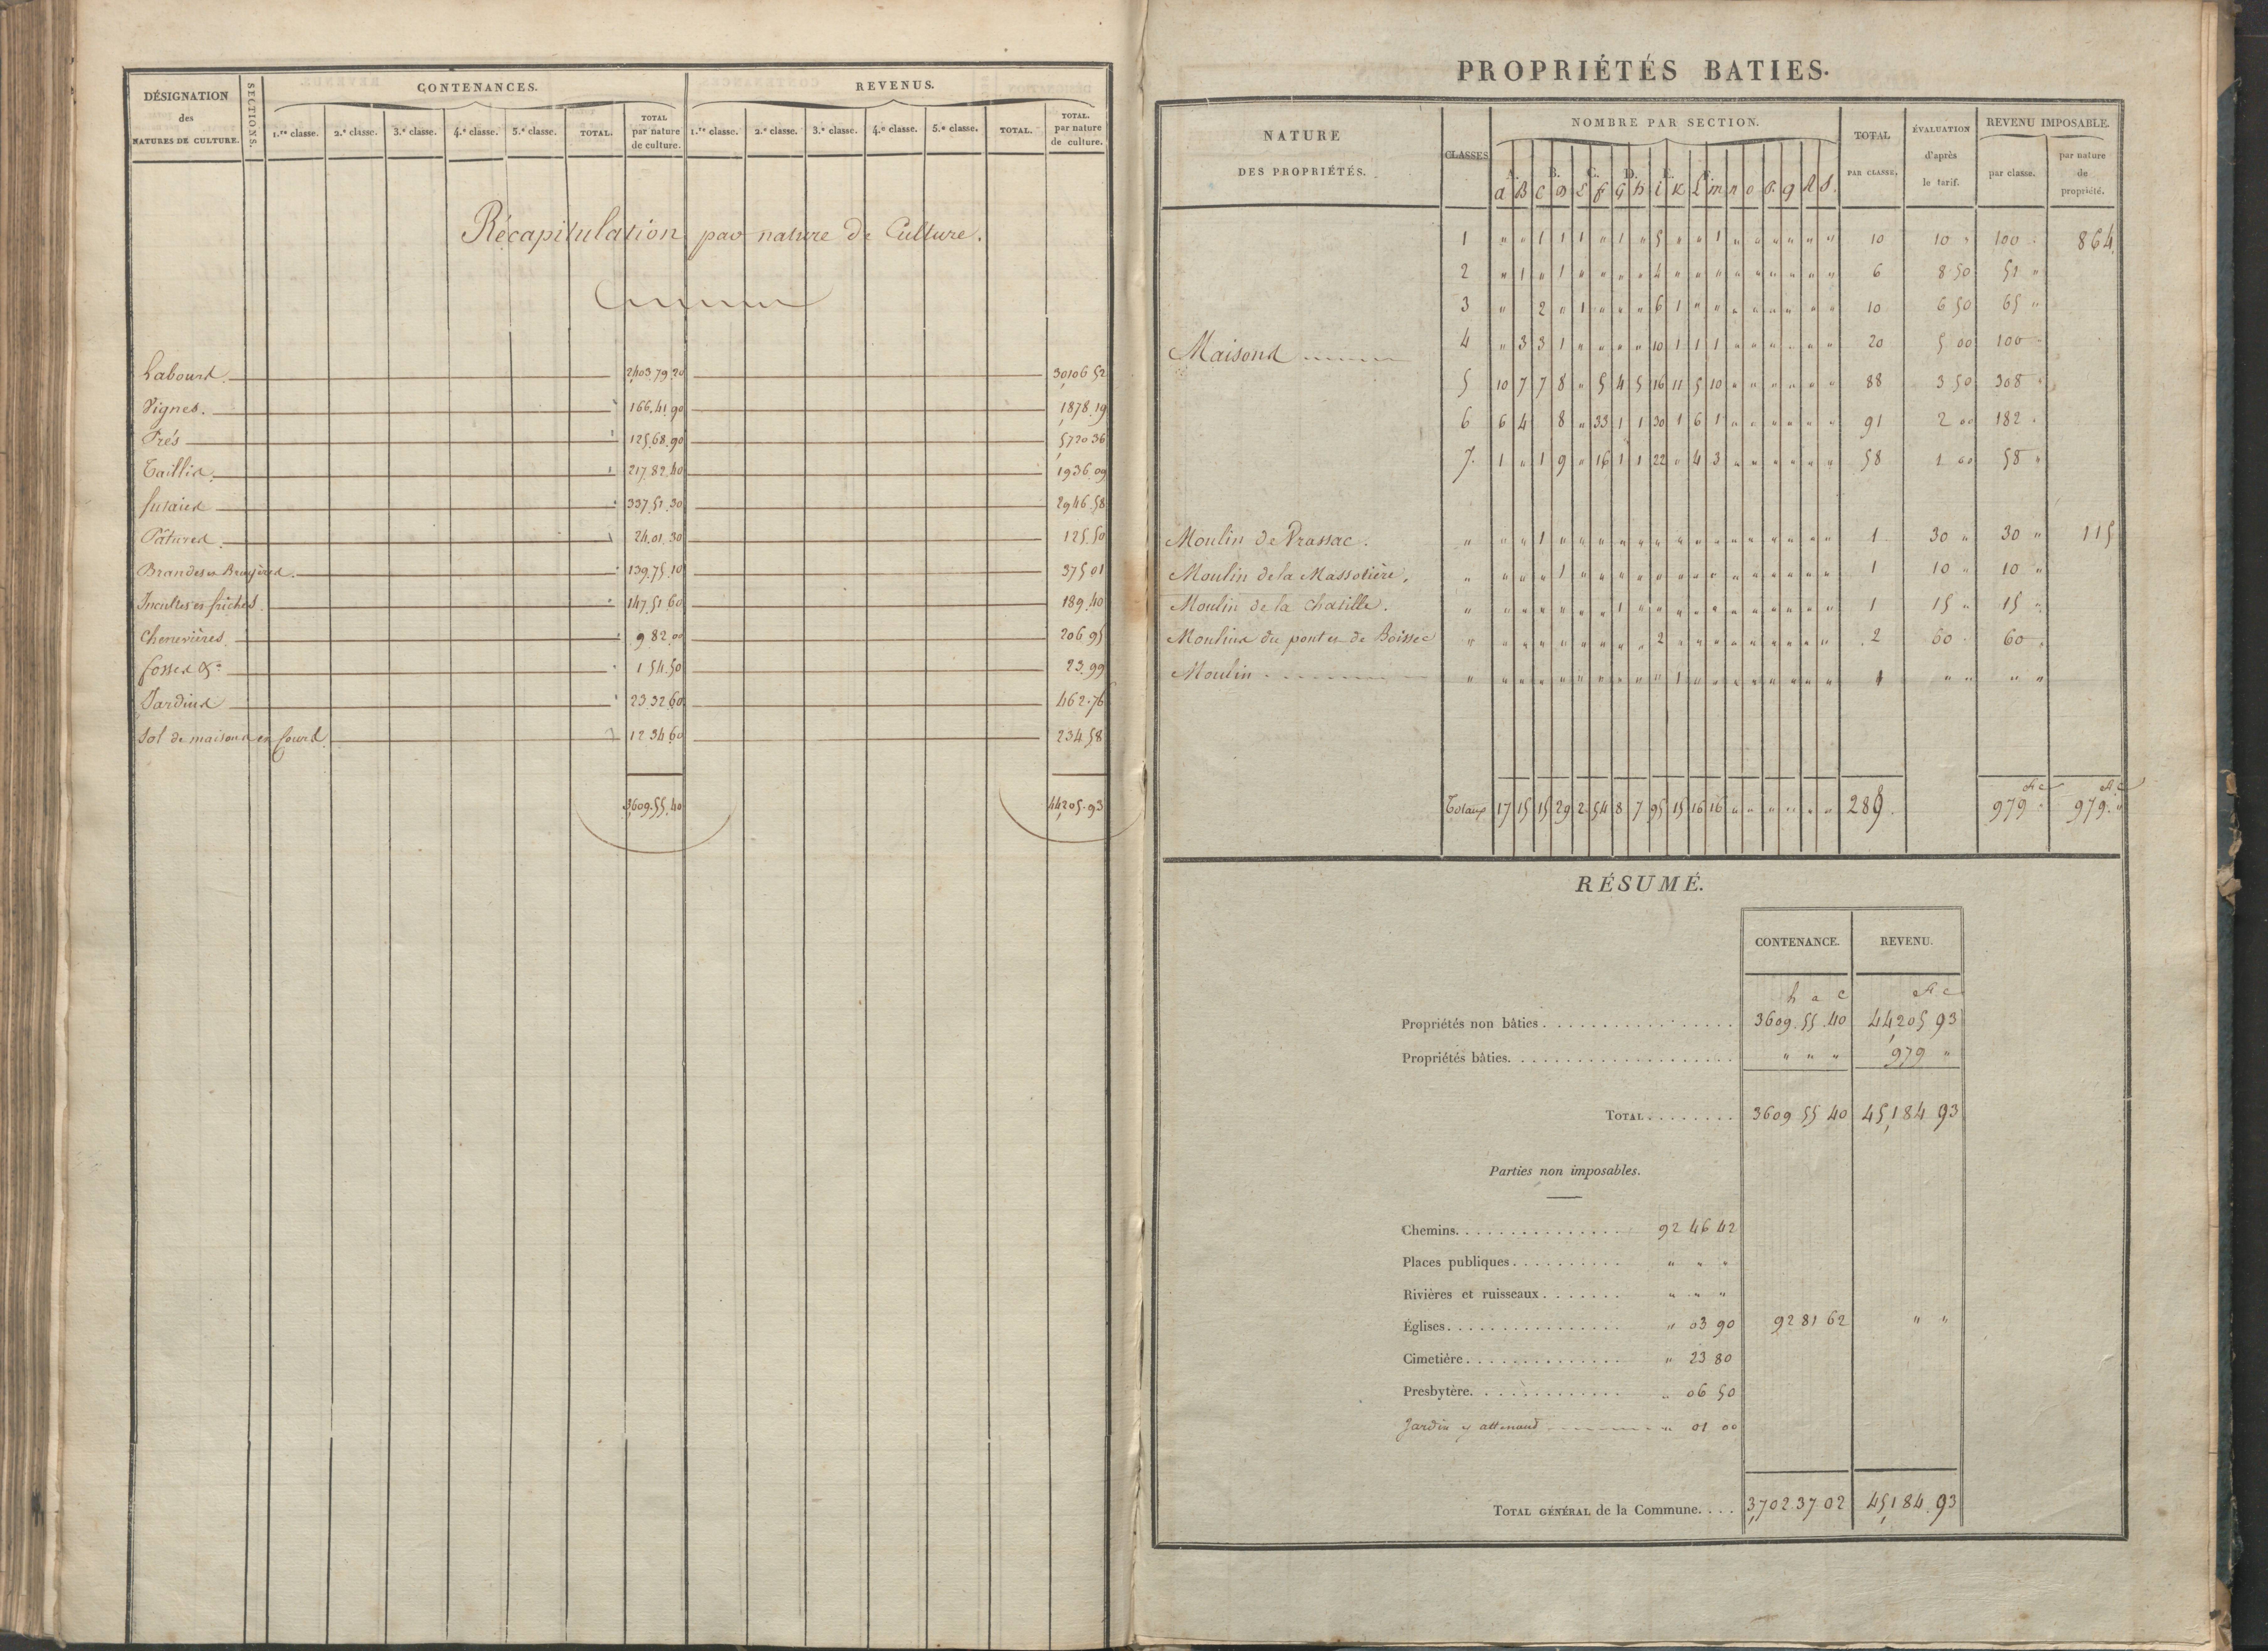 DÉSIGNATION des NATURES DE CULTURE. SECTIONS. CONTENANCES. REVENUS.
1.re classe. 2.e classe. 3.e classe. 4.e classe. 5.e classe. TOTAL. TOTAL par nature de culture. 1.re classe. 2.e classe. 3.e classe. 4.e classe. 5.e classe. TOTAL. TOTAL. par nature de culture.
Récapitulation par nature de Culture.
Labours. 2403.79.20 30106 52
Vignes. 166.41.90 1878.19
Prés 125.68.90 5720 36
Taillis. 217.82.40 1936.09
futaies 337.51.30 2946.58
Pâtures. 24.01.30 125.50
Brandes et Bruyères. 139.75.10 375 01
Incultes et friches. 147.51.60 189.40
Chenevières. 9 82.00 206 95
fosses &a 1 54.50 23.99
Jardins 23.32.60 462.76
Sol de maisons et Cours. 12 34.60 234.58
3609.55.40 44205.93
PROPRIÉTÉS BATIES.
NATURE DES PROPRIÉTÉS. CLASSES NOMBRE PAR SECTION. TOTAL PAR CLASSE. ÉVALUATION d'après le tarif. REVENU IMPOSABLE.
par classe. par nature de propriété.
A. B. C. D. E. F.
a B C D E f G h i K L m n o P. q R S.
Maisons
1 " " 1 1 1 " 1 " 5 " " 1 " " " " " " 10 10 " 100 " 864
2 " 1 " 1 " " " " 4 " " " " " " " " " 6 8.50 51 "
3 " 2 " 1 " " " 6 1 " " " " " " " " 10 6 50 65 "
4 " 3 3 1 " " " " 10 1 1 1 " " " " " " 20 5 00 100 "
5 10 7 7 8 " 5 4 5 16 11 5 10 " " " " " " 88 3 50 308 "
6 6 4 8 " 33 1 1 30 1 6 1 " " " " " " 91 2 00 182 "
7. 1 " 1 9 " 16 1 1 22 " 4 3 " " " " " " 58 1 00 58 "
Moulin de Prassac. " " " 1 " " " " " " " " " " " " " " " 1 30 " 30 " 115
Moulin de la Massotière. " " " " 1 " " " " " " " " " " " " " " 1 10 " 10 "
Moulin de la Chatille. " " " " " " " 1 " " " " " " " " " " " 1 15 " 15 "
Moulins du pont et de Boissec " " " " " " " " " 2 " " " " " " " " " 2 60 " 60 "
Moulin " " " " " " " " " " 1 " " " " " " " " 1 " " " "
Totaux 17 15 15 29 2 54 8 7 95 15 16 16 " " " " " " 289. 979 " 979. "
RÉSUMÉ.
CONTENANCE. REVENU.
h a c f c
Propriétés non bâties 3609.55.40 44205 93
Propriétés bâties. " " " 979 "
TOTAL 3609 55 40 45,184 93
Parties non imposables.
Chemins. 92 46 42
Places publiques " " "
Rivières et ruisseaux " " "
Églises. " 03 90 92 81 62 " "
Cimetière " 23 80
Presbytère. " 06 50
Jardin y attenant " 01 00
TOTAL GÉNÉRAL de la Commune. 3,702 37 02 45,184.93